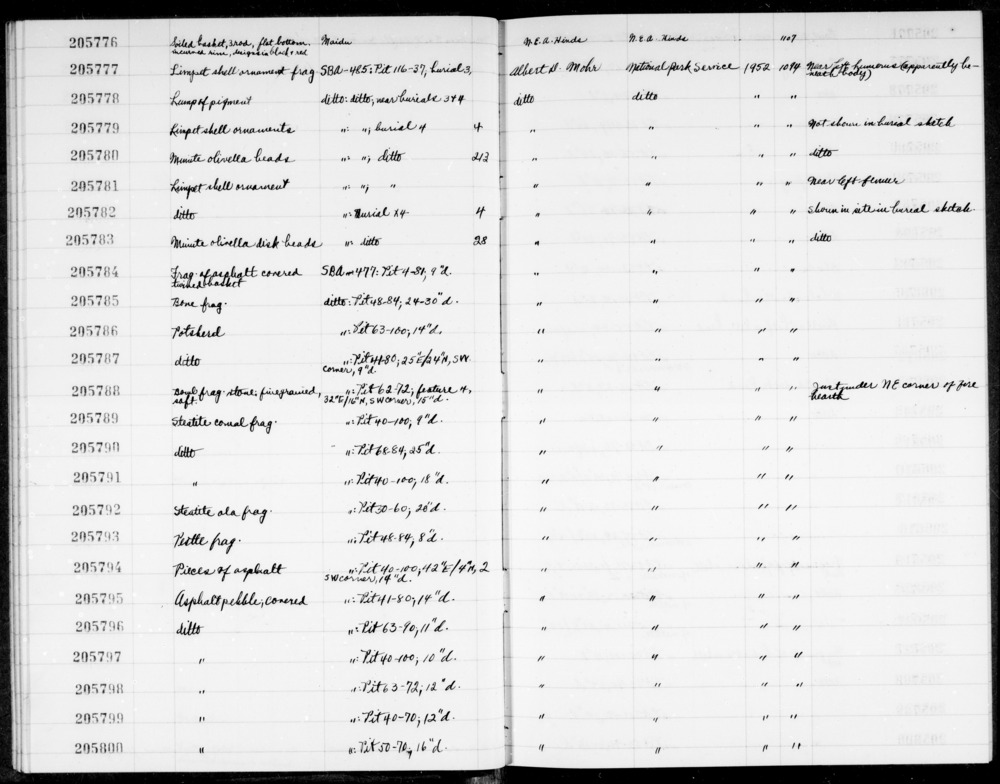 205776 Coiled basket, 3 rod, flat bottom. Maidu N.E.A. Hinds N.E.A. Hinds 1107
incurved rim, design in black + red
205777 Limpet shell ornament frag SBA-485: Pit 116-37, burial 3, Albert D. Mohr National Park Service 1952 1094 Near left humerus (apparently be-
neath body)
205778 Lump of pigment ditto: ditto, near burials 3+4 ditto ditto " "
205779 Limpet shell ornaments ": "; burial 4 4 " " " " Not shown in burial sketch
205780 Minute olivella beads ": "; ditto 213 " " " " ditto
205781 Limpet shell ornament ": "; " " " " " Near left femur
205782 ditto ": Burial X4- 4 " " " " Shown in situ in burial sketch
205783 Minute olivella disk beads ": ditto 28 " " " " ditto
205784 Frag. of asphalt covered SBA-477: Pit 4-81, 9"d. " " " "
twined basket
205785 Bone frag. ditto: Pit 48-84; 24-30"d. " " " "
205786 Potsherd ": Pit 63-100; 14"d. " " " "
205787 ditto ": Pit 41-80; 25"E/24"N, SW " " " "
corner, 9"d.
205788 Bowl frag. stone; fine grained, ": Pit 62-72; feature 4, " " " " Just under NE corner of fire
soft. 32"E/16"N, SW corner, 15"d. hearth
205789 Steatite comal frag. ": Pit 40-100; 9"d. " " " "
205790 ditto ": Pit 68-84, 25"d. " " " "
205791 " ": Pit 40-100; 18"d. " " " "
205792 Steatite ola frag. ": Pit 30-60; 26"d. " " " "
205793 Pestle frag. ": Pit 48-84, 8"d. " " " "
205794 Pieces of asphalt ": Pit 40-100; 42"E/4"N, 2 " " " "
SW corner, 14"d.
205795 Asphalt pebble; covered ": Pit 41-80; 14"d. " " " "
205796 ditto ": Pit 63-90; 11"d. " " " "
205797 " ": Pit 40-100; 10"d. " " " "
205798 " ": Pit 63-72; 12"d. " " " "
205799 " ": Pit 40-70; 12"d. " " " "
205800 " ": Pit 50-70, 16"d. " " " "